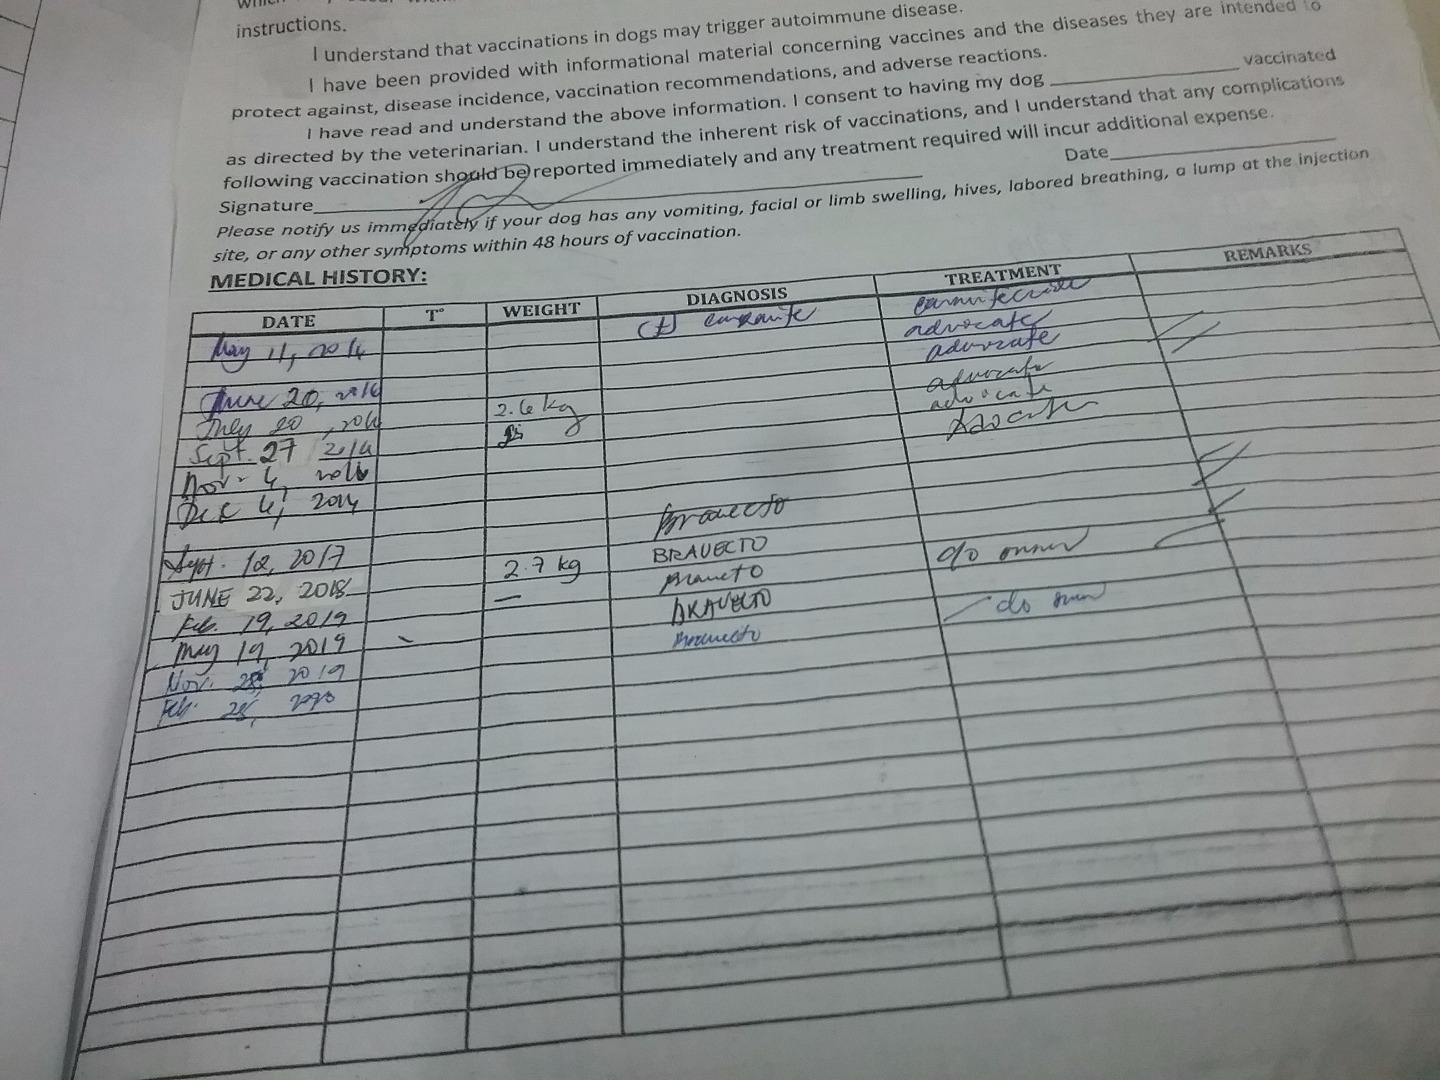 instructions.
I understand that vaccinations in dogs may trigger autoimmune disease.
I have been provided with informational material concerning vaccines and the diseases they are intended to
protect against, disease incidence, vaccination recommendations, and adverse reactions.
I have read and understand the above information. I consent to having my dog ____________________ vaccinated
as directed by the veterinarian. I understand the inherent risk of vaccinations, and I understand that any complications
following vaccination should be reported immediately and any treatment required will incur additional expense.
Signature____________________ Date____________________
Please notify us immediately if your dog has any vomiting, facial or limb swelling, hives, labored breathing, a lump at the injection
site, or any other symptoms within 48 hours of vaccination.
MEDICAL HISTORY:
DATE T° WEIGHT DIAGNOSIS TREATMENT REMARKS
May 11, 2016 (+)
advocate
advocate
June 20, 2016 advocate
July 20, 2016 2.6 kg advocate
Sept. 27 2016
Nov. 4, 2016
Dec 4, 2016
Bravecto
Sept. 12, 2017 BRAVECTO
JUNE 22, 2018 2.7 kg Bravecto c/o owner
Feb. 19, 2019 — BRAVECTO
May 19, 2019 Bravecto
Nov. 28, 2019
Feb. 28, 2020